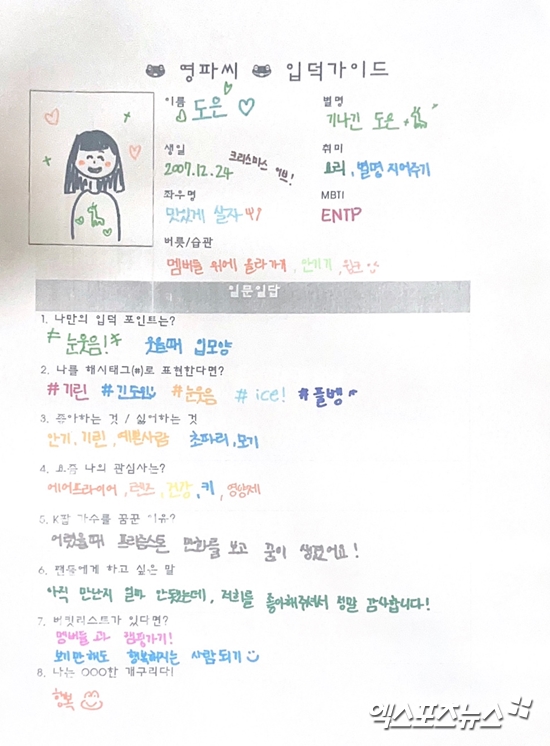 영파씨 입덕가이드
이름 도은
별명
기나긴 도은
생일 2007.12.24 크리스마스 이브!
취미
요리, 별명 지어주기
좌우명
맛있게 살자
MBTI
ENTP
버릇/습관
멤버들 위에 올라가기, 안기기, 윙크
일문일답
1. 나만의 입덕 포인트는?
눈웃음! 웃을때 입모양
2. 나를 해시태그(#)로 표현한다면?
#기린 #긴도은 #눈웃음 #ice! #플뱅
3. 좋아하는 것 / 싫어하는 것
안기, 기린, 예쁜사람 초파리, 모기
4. 요즘 나의 관심사는?
에어드라이어, 렌즈, 건강, 키, 영양제
5. K팝 가수를 꿈꾼 이유?
어렸을때 프리즘스톤 만화를 보고 꿈이 생겼어요!
6. 팬들에게 하고 싶은 말
아직 만난지 얼마 안됐는데, 저희를 좋아해주셔서 정말 감사합니다!
7. 버킷리스트가 있다면?
멤버들과 캠핑가기!
보기만해도 행복해지는 사람 되기
8. 나는 OOO한 개구리다!
행복
엑스포츠뉴스